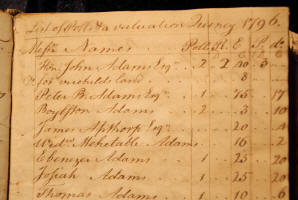 List of Polls & a valuation Quincy 1796.
Mess.rs Names Polls R. E P. do
Hon. John Adams Esq.r 2 2 30 3
Do for verchilds land 8
Peter B. Adams Esq.r 1 75 17
Boylston Adams 2 3 10
James Apthorp Esq.r 20 4
Wid.w Mehetable Adams 16 2
Ebenezer Adams 1 25 20
Josiah Adams 1 25 20
Thomas Adams 1 10 6